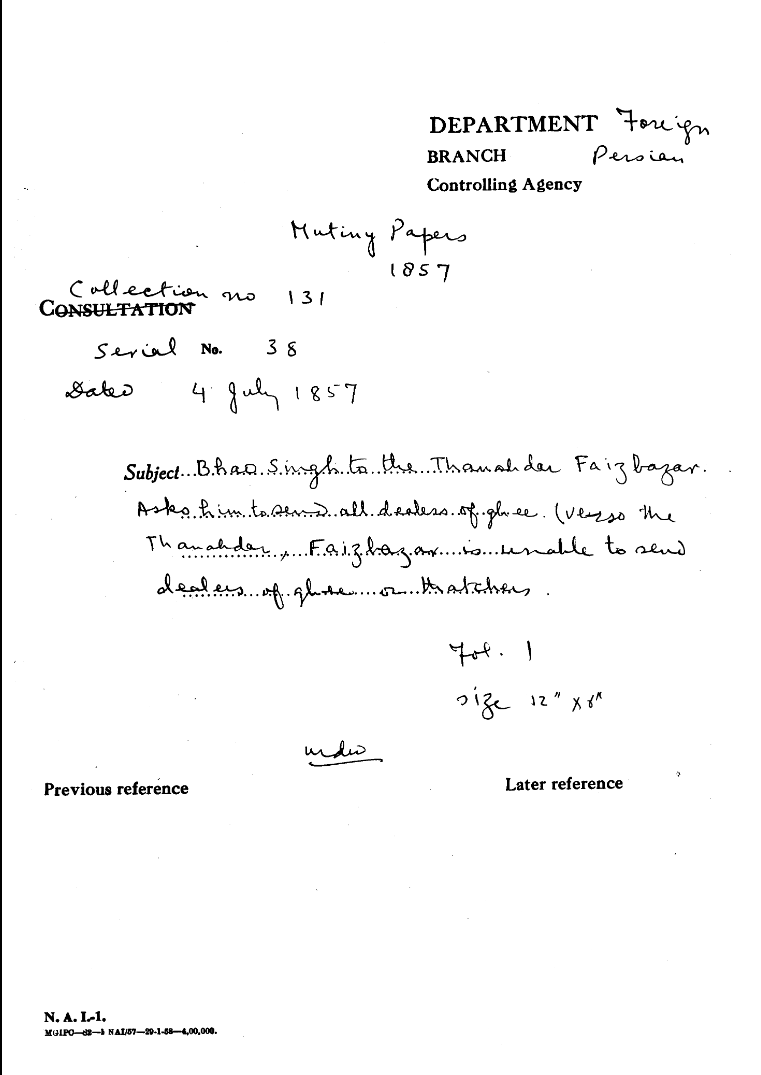 DEPARTMENT Foreign
BRANCH Persian
Controlling Agency
Mutiny Papers
1857
Collection no 131
CONSULTATION
Serial No. 38
Dated 4 July 1857
Subject... Bhao Singh to the Thanahdar Faizbazar.
Asks him to send all dealers of ghee. (verso the
Thanahdar, Faizbazar is unable to send
dealers of ghee or thatchers.
Fol. 1
size 12" x 8"
Urdu
Previous reference Later reference
N. A. I.-1.
MGIPC—82—1 NAI/57—29-1-58—4,00,000.